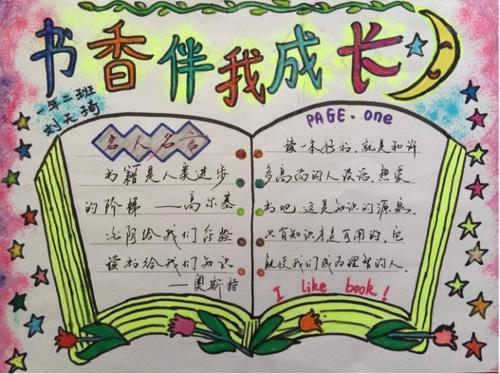 书香伴我成长
一年二班
刘天琦
名人名言
书籍是人类进步
的阶梯 ——高尔基
光阴给我们经验
读书给我们知识
——奥斯特
PAGE.one
读一本好书,就是和许
多高尚的人谈话,热爱
书吧,这是知识的源泉,
只有知识才是可用的,它
能使我们成为理智的人.
I like book!